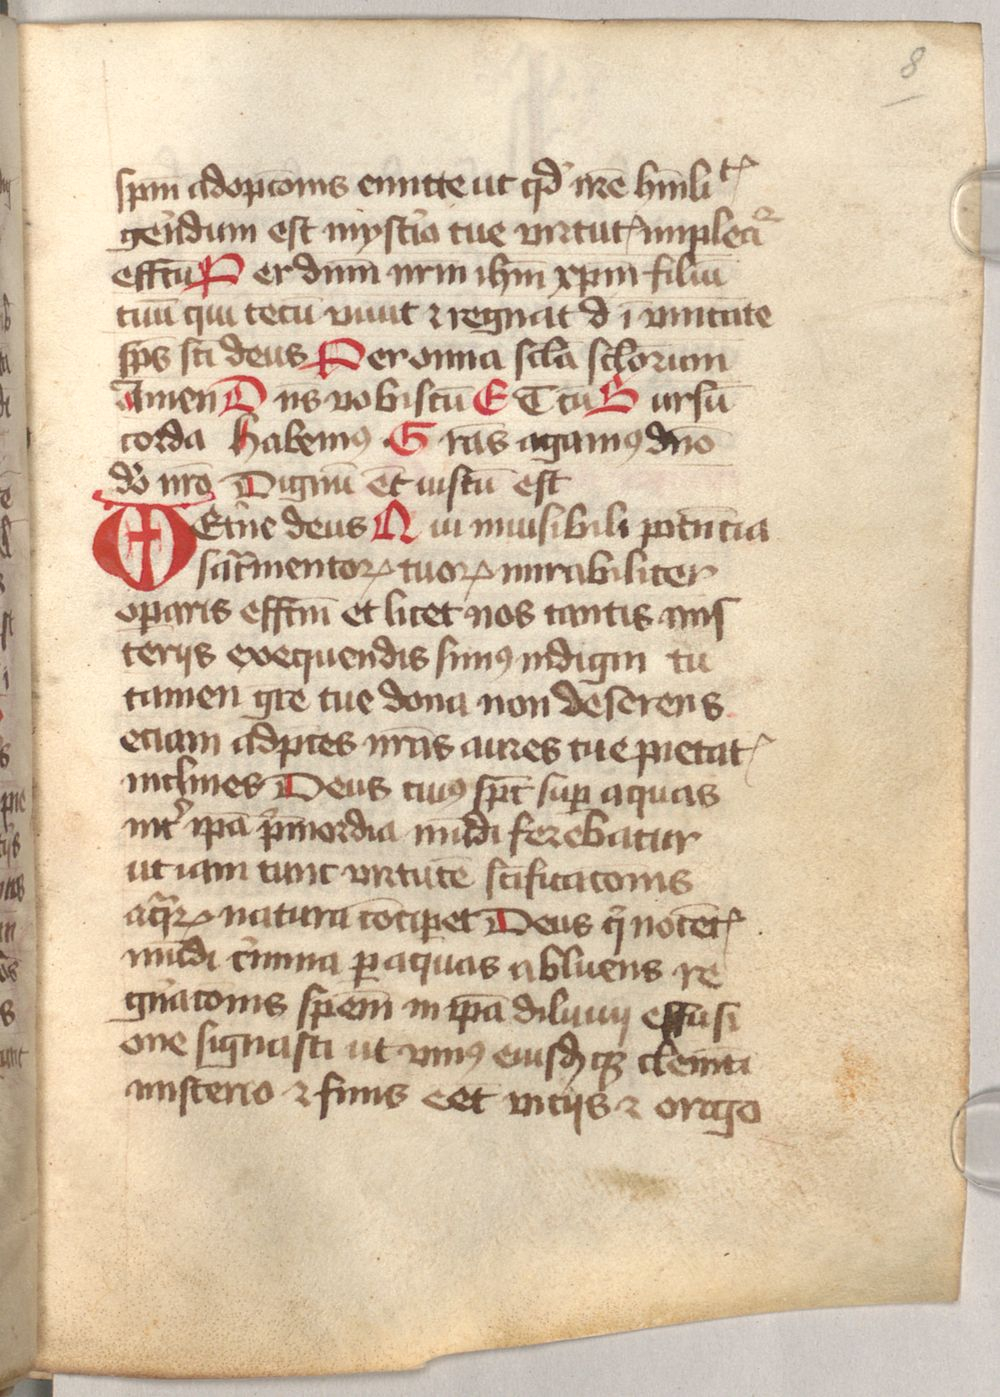 8
spm̄ adopcōnis emitte ut qd̓ nr̄e hmīlitꝭ
gēndum est mystīo tue virtutꝭ impleat᷑
effc̄tū Per dnm̄ nrm̄ ihm̄ xpm̄ filiū
tuū qui tecū viuit ⁊ regnat d ī vnitate
sps̄ sc̄i deus Per omnia sclā sclōrum
amen Dns̄ vobiscū Et cū Sursū
corda Habemꝰ Grās agamꝰ dn̄o
dō nr̄o Dignū et iustū est
Et̓ne deus Qui inuisibili potēncia
sac̄mentoꝝ tuoꝝ mirabiliter
oparis effc̄m et licet nos tantis mis
terijs exequendis simꝰ indigni tu
tamen gr̄e tue dona non deserens
eciam ad pces nr̄as aures tue pietatꝭ
inclines Deus cuiꝰ spc̄ sup aquas
int̓ ipā p̓mordia mūdi ferebatur
ut iam tunc virtutē sc̄ificacōnis
aq̄ꝝ natura cōcipet Deus q̓ nocētꝭ
mūdi c̓mina p aquas abluens re
gn̄acōnis spēm in ipā diluuij effusi
one signasti ut vniꝰ eiusdꝫ qꝫ elemēti
misterio ⁊ finis eēt vicijs ⁊ origo